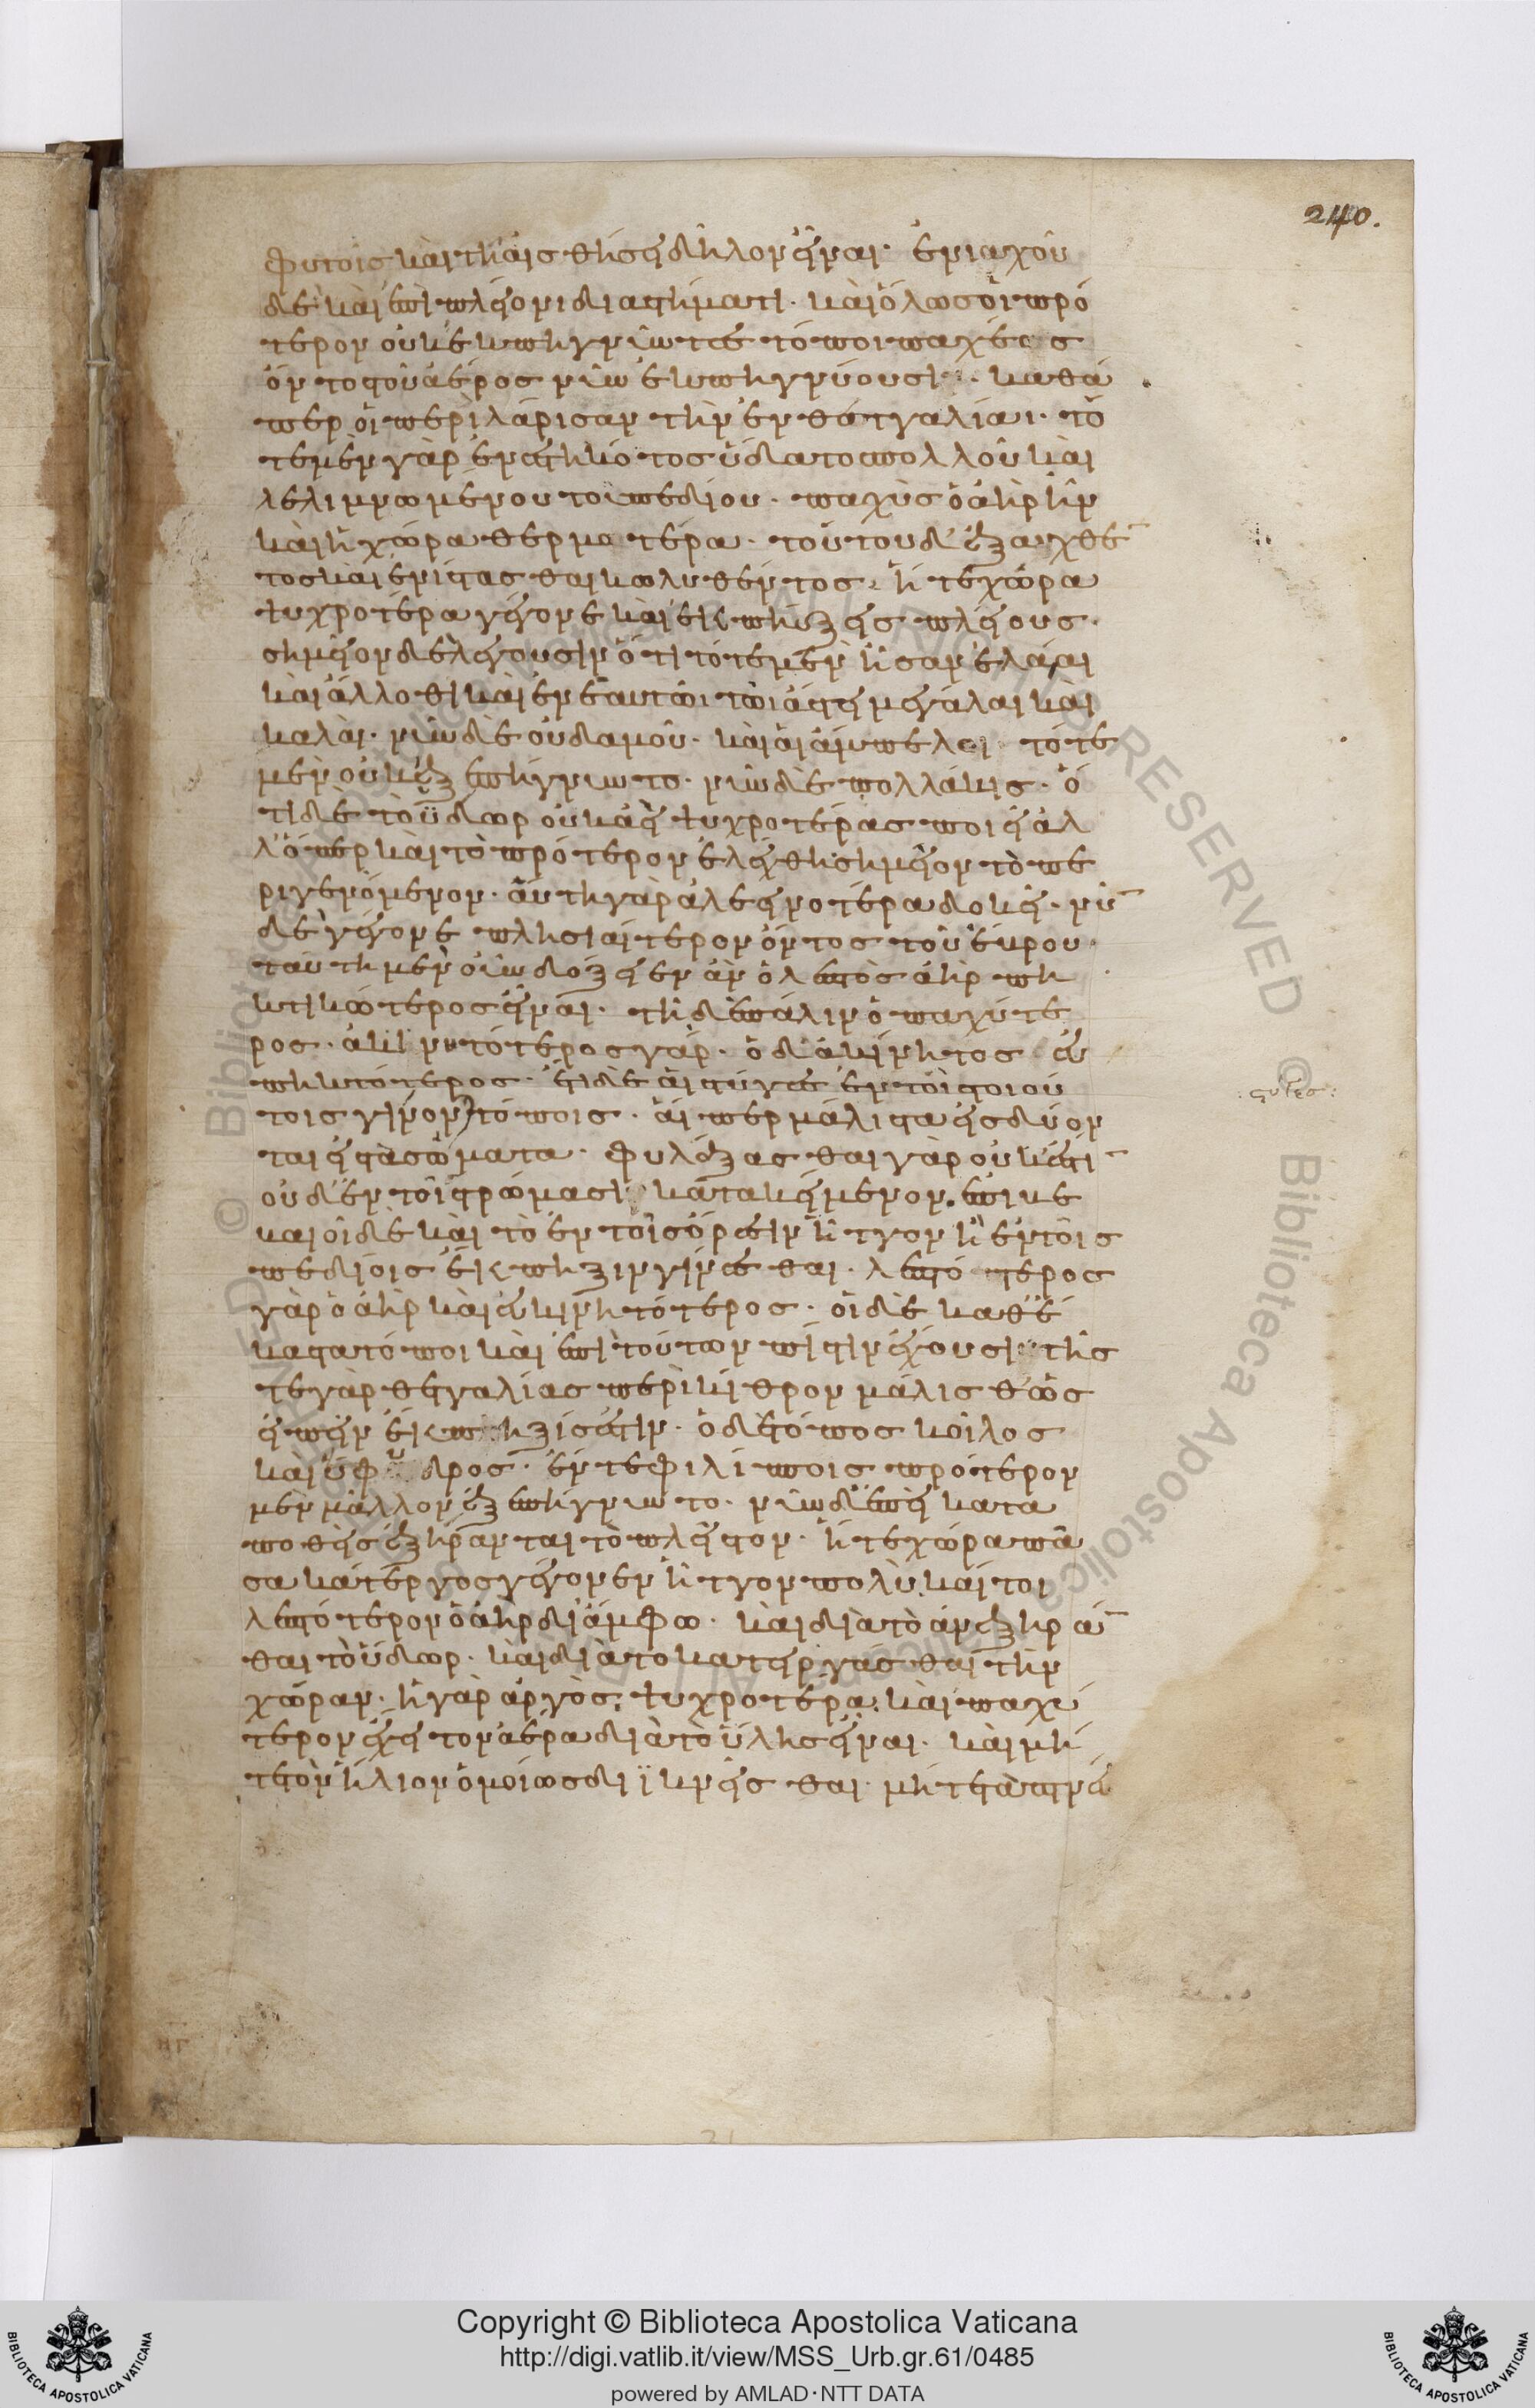 240.
φυτοῖς καὶ τῆ αἰσθήσει δῆλον εἶναι· ἐνιαχοῦ
δὲ καὶ ἐπὶ πλέονι διαστήματι· καὶ ὅλως οἱ πρό
τερον οὐκ ἐκπηγνύντες τόποι παχέος
ὄντος τοῦ ἀέρος νῦν ἐκπηγνύουσι· καθά
περ οἱ περὶ λάρισαν τὴν ἐν θετταλίαι· τό
τε μὲν γὰρ ἐνεστηκότος ὕδατος πολλοῦ καὶ
λελιμνωμένου του πεδίου· παχὺς ὁ ἀὴρ ἦν
καὶ ἡ χώρα θερμοτέρα· τούτου δ' ἐξαχθέ
τος καὶ ἐνίστασθαι κωλυθέντος· ἥ τε χώρα
ψυχροτέρα γέγονε καὶ ἐκπήξεις πλείους·
σημεῖον δὲ λέγουσιν ὅτι τότε μὲν ἦσαν ἐλάαι
καὶ ἄλλοθι καὶ ἐν ἑαυτῶι τῶι ἄστει μεγάλαι καὶ
καλαὶ· νῦν δὲ οὐδαμοῦ· καὶ αἱ ἄμπελοι τότε
μὲν οὐκ ἐξεπήγνυντο· νῦν δὲ πολλάκις· ὅ
τι δὲ τὸ ὕδωρ οὐκ ἀεὶ ψυχροτέρας ποιεῖ ἀλ
λ' ὅπερ καὶ τὸ πρότερον ἐλέχθη σημεῖον τὸ πε
ρι γενόμενον· αὕτη γὰρ ἀλεεινοτέρα δοκεῖ· νῦ
δὲ γέγονε πλησιαίτερον ὄντος τοῦ εὔρου·
ταύτη μὲν οὖν δόξειεν ἂν ὁ λεπτὸς ἀὴρ πη
κτικώτερος εἶναι· τῆ δὲ πάλιν ὁ παχύτε
ρος· ἀκινητότερος γάρ· ὁ δ' ἀκίνητος εὐ
πηκτότερος· ἔτι δὲ αἱ στύγες ἐν τοῖς τοιού
τοις γίνοντ τόποις· αἵπερ μάλιστα εἰσδύον
ται εἰς τὰ σώματα· φυλάξασθαι γὰρ οὐκ ἔστι
οὐδ' ἐν τοῖς στρώμασι κατακείμενον· ἔοικε
και οἱ δὲ καὶ τὸ ἐν τοῖς ὄρεσιν ἧττον ἢ ἐν τοῖς
πεδίοις ἔκπηξιν γίνεσθαι· λεπτότερος
γὰρ ὁ ἀὴρ καὶ εὐκινητότερος· οἱ δὲ καθ' ἕ
καστα τόποι καὶ ἐπὶ τούτων πίστιν ἔχουσι τῆς
τε γὰρ θετταλίας περὶ κίθρον μάλισθ' ὡς
εἰπεῖν ἔκπηξίς ἐστιν· ὁ δὲ τόπος κοῖλος
καὶ ἔφυδρος· ἔν τε φιλίποις πρότερον
μὲν μᾶλλον ἐξεπήγνυντο· νῦν δ' ἐπεὶ κατα
ποθεὶς ἐξήρανται τὸ πλεῖστον· ἥ τε χώρα πᾶ
σα κάτεργος γέγονεν ἧττον πολύ καί τοι
λεπότερον ὁ ἀὴρ δι' ἄμφω· καὶ διὰ τὸ ἀνεξηρά
θαι τὸ ὕδωρ· καὶ διὰ το κατειργάσθαι τὴν
χώραν· ἡ γὰρ ἀργὸς· ψυχροτέρα· καὶ παχύ
τερον ἔχει τον ἀέρα διὰ τὸ ὕλης εἶναι· καὶ μή
τε τὸν ἥλιον ὁμοίως διϊκνεῖσθαι· μήτε τὰ πνεύ
Copyright © Biblioteca Apostolica Vaticana
http://digi.vatlib.it/view/MSS_Urb.gr.61/0485
powered by AMLAD·NTT DATA